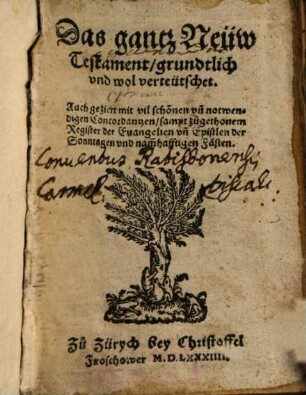 Das gantz Neüw
Testament/grundtlich
vnd wol verteütschet.
Auch geziert mit vil schönen vñ notwen-
digen Concordantzen/sampt zůgethonem
Register der Euangelien vñ Epistlen der
Sonntagen vnd namhafftigen Fästen.
Conventus Ratisbonensis
Carmel. Discal.
Zů Zürych bey Christoffel
Froschower M.D.LXXXIIII.